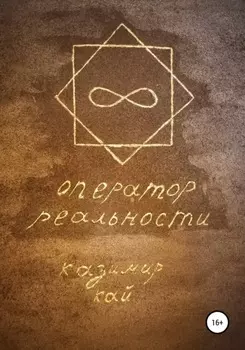 оператор
реальности
казимир
кай
16+